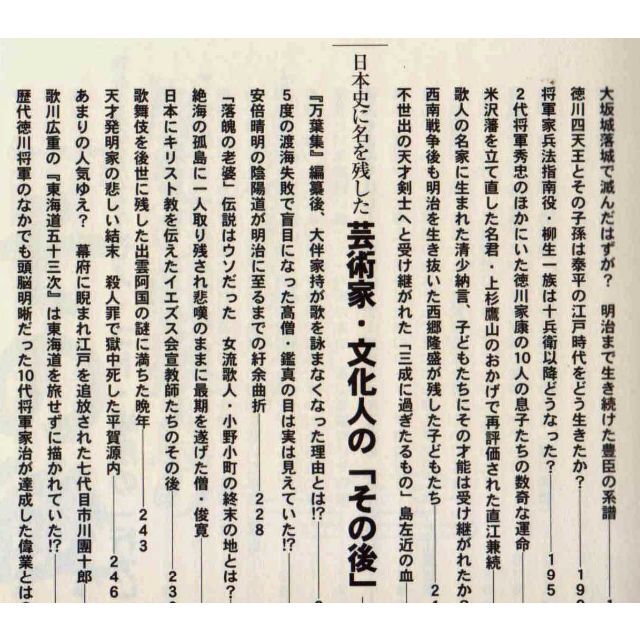 大坂城落城で滅んだはずが？　明治まで生き続けた豊臣の系譜
徳川四天王とその子孫は泰平の江戸時代をどう生きたか？
将軍家兵法指南役・柳生一族は十兵衛以降どうなった？ 195
2代将軍秀忠のほかにいた徳川家康の10人の息子たちの数奇な運命
米沢藩を立て直した名君・上杉鷹山のおかげで再評価された直江兼続
歌人の名家に生まれた清少納言、子どもたちにその才能は受け継がれたか？
西南戦争後も明治を生き抜いた西郷隆盛が残した子どもたち
不世出の天才剣士へと受け継がれた「三成に過ぎたるもの」島左近の血
日本史に名を残した 芸術家・文化人の「その後」
『万葉集』編纂後、大伴家持が歌を詠まなくなった理由とは!?
5度の渡海失敗で盲目になった高僧・鑑真の目は実は見えていた!?
安倍晴明の陰陽道が明治に至るまでの紆余曲折 228
「落魄の老婆」伝説はウソだった　女流歌人・小野小町の終末の地とは？
絶海の孤島に一人取り残され悲嘆のままに最期を遂げた僧・俊寛
日本にキリスト教を伝えたイエズス会宣教師たちのその後
歌舞伎を後世に残した出雲阿国の謎に満ちた晩年 243
天才発明家の悲しい結末　殺人罪で獄中死した平賀源内 246
あまりの人気ゆえ？　幕府に睨まれ江戸を追放された七代目市川團十郎
歌川広重の『東海道五十三次』は東海道を旅せずに描かれていた!?
歴代徳川将軍のなかでも頭脳明晰だった10代将軍家治が達成した偉業とは